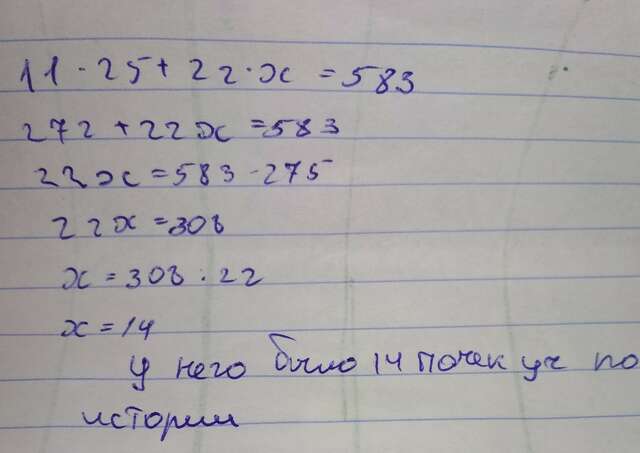 11 · 25 + 22 · x = 583
272 + 22x = 583
22x = 583 - 275
22x = 308
x = 308 : 22
x = 14
У него было 14 почек уч по
истории